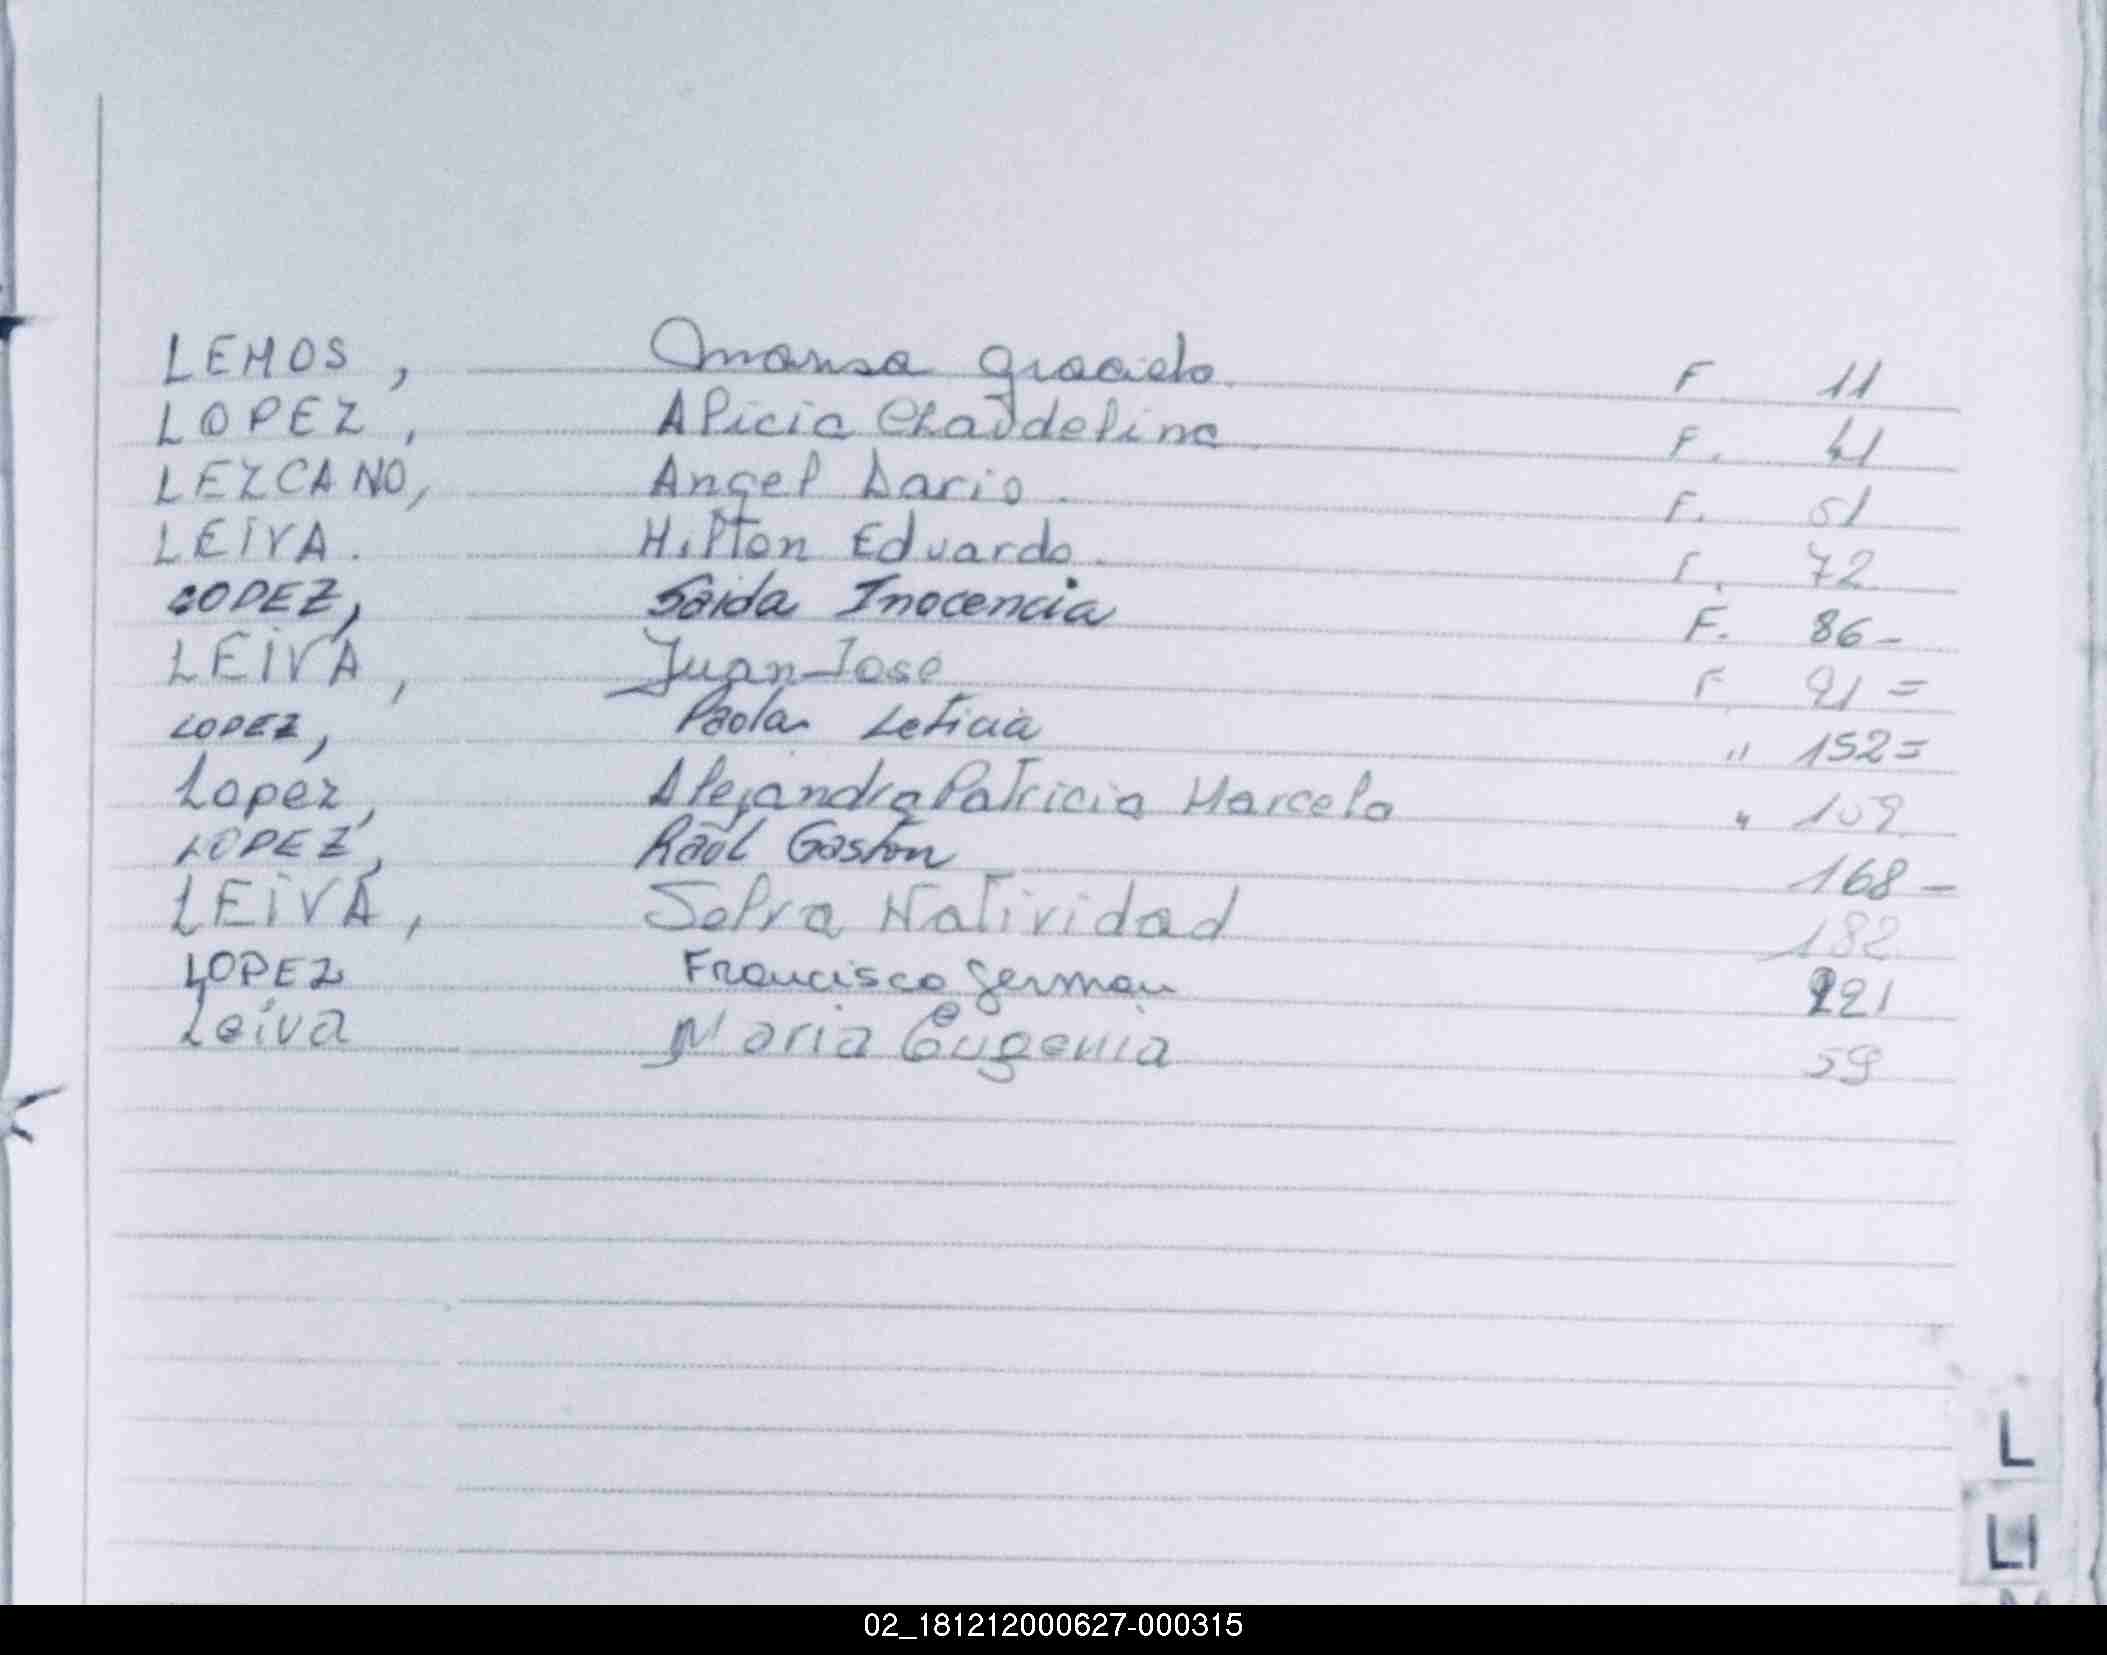 LEMOS, Marisa Graciela. F. 11
LOPEZ, Alicia Claudelina F. 41
LEZCANO, Angel Dario. F. 51
LEIVA. Hilton Eduardo. F. 72
LOPEZ, Saida Inocencia F. 86-
LEIVA, Juan Jose F 91=
LOPEZ, Paola Leticia " 152=
Lopez, Alejandra Patricia Marcela " 109
LOPEZ, Raúl Gaston 168-
LEIVA, Selva Natividad 182
LOPEZ Francisco German 221
Leiva Maria Eugenia 59
L
LI
02_181212000627-000315